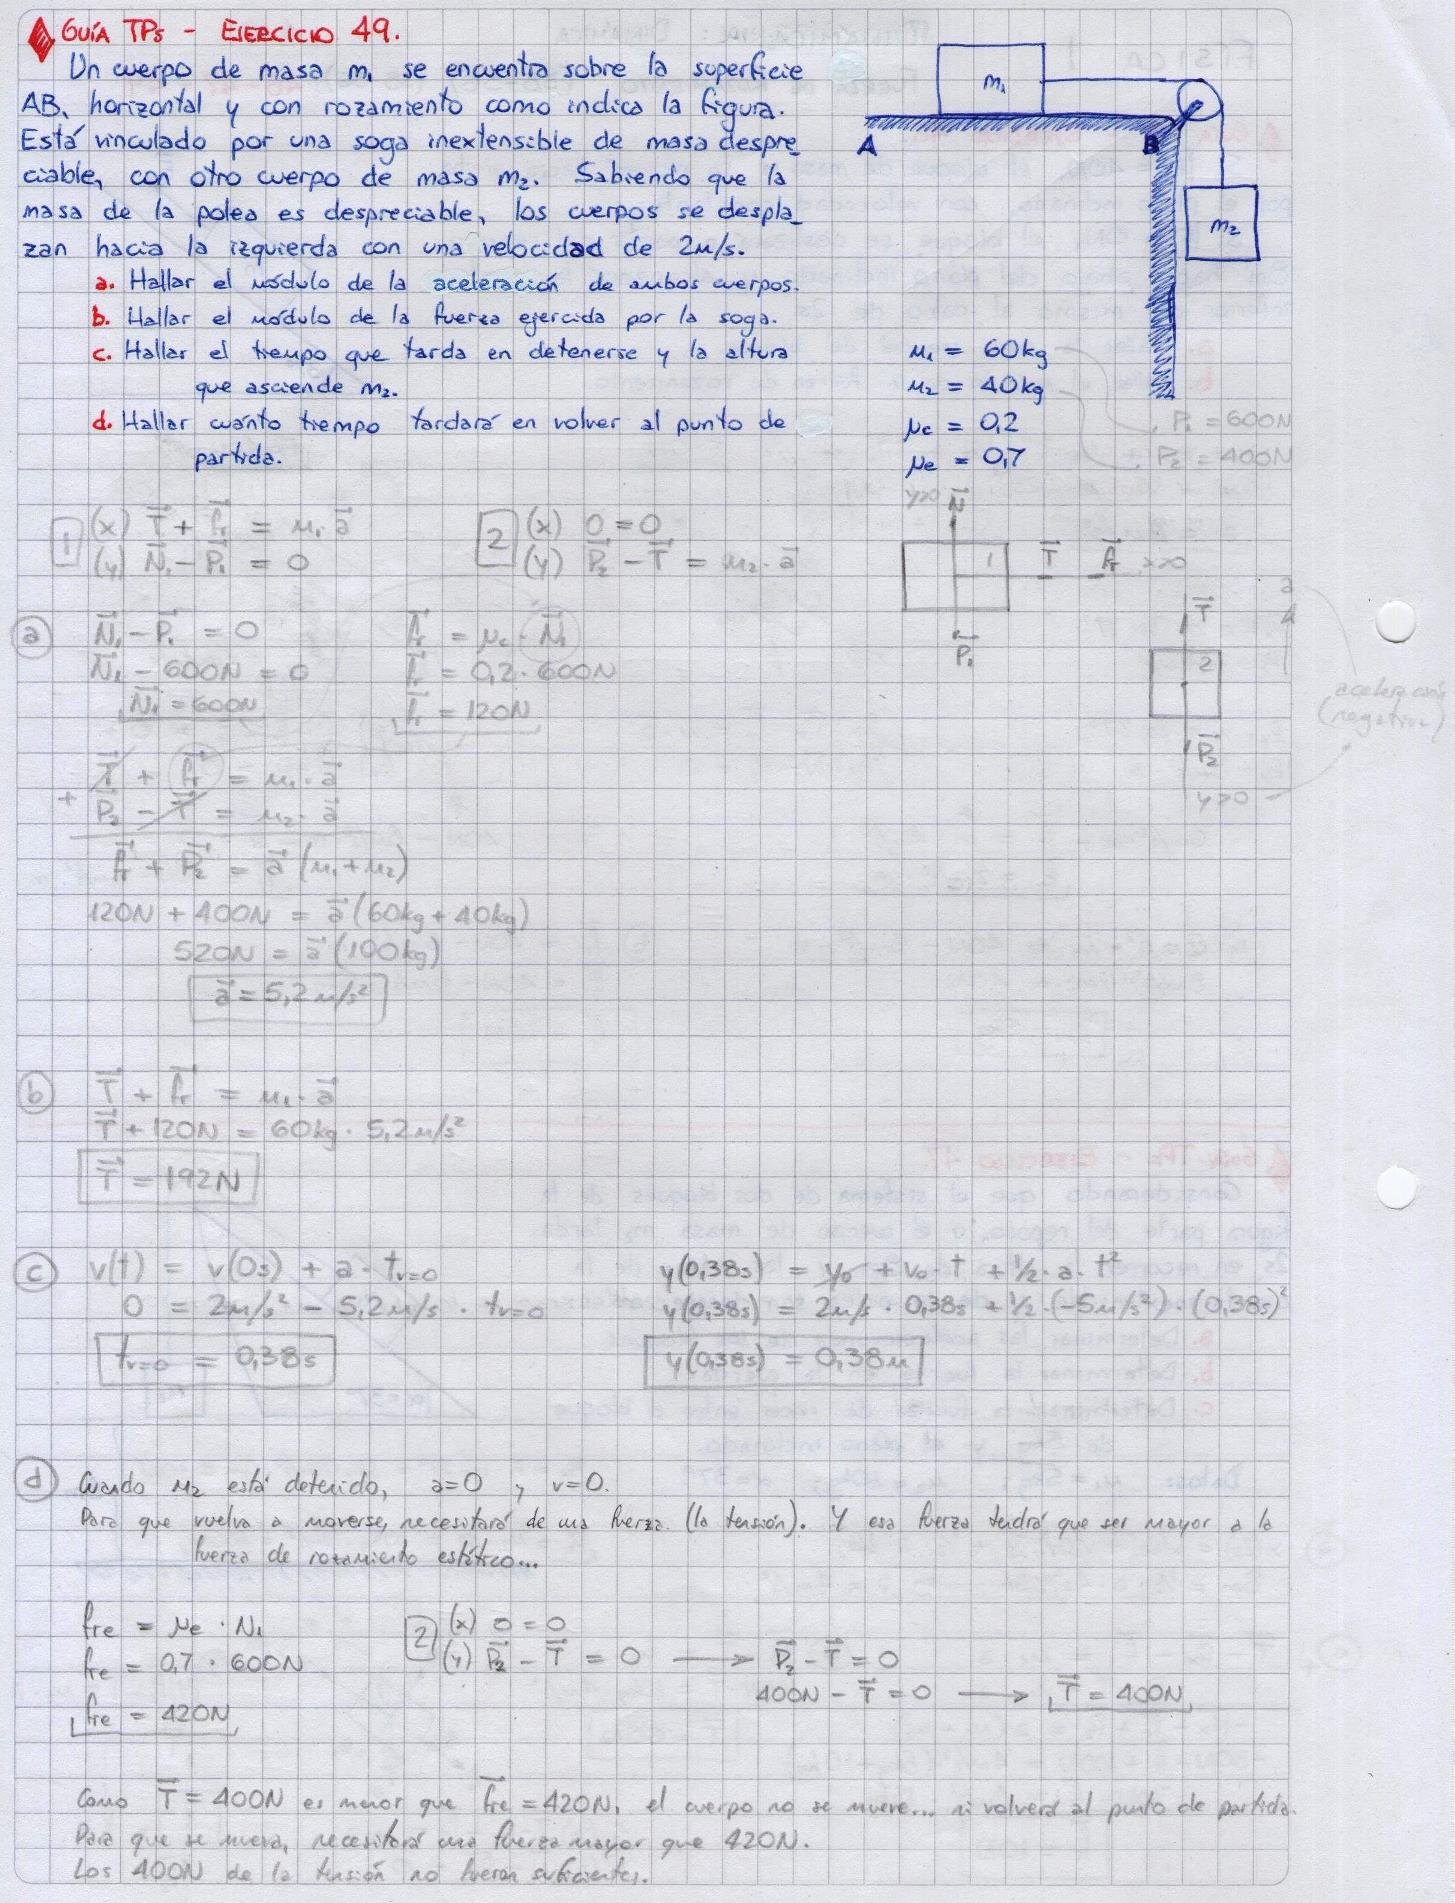 GUÍA TPs - EJERCICIO 49.
Un cuerpo de masa m₁ se encuentra sobre la superficie
AB, horizontal y con rozamiento como indica la figura.
Está vinculado por una soga inextensible de masa despre_
ciable, con otro cuerpo de masa m₂. Sabiendo que la
masa de la polea es despreciable, los cuerpos se despla_
zan hacia la izquierda con una velocidad de 2m/s.
a. Hallar el módulo de la aceleración de ambos cuerpos.
b. Hallar el módulo de la fuerza ejercida por la soga.
c. Hallar el tiempo que tarda en detenerse y la altura
que asciende m₂.
d. Hallar cuánto tiempo tardará en volver al punto de
partida.
m₁
A
B
m₂
m₁ = 60kg
m₂ = 40kg
μc = 0,2
μe = 0,7
P₁ = 600N
P₂ = 400N
1 (x) T⃗ + f⃗r = m₁ · a⃗
(y) N⃗₁ - P⃗₁ = 0
2 (x) 0 = 0
(y) P⃗₂ - T⃗ = m₂ · a⃗
y>0 N⃗
1 T⃗ f⃗r x>0
P⃗₁
T⃗
2
P⃗₂
y>0
a
aceleración
(negativa)
a N⃗₁ - P⃗₁ = 0
N⃗₁ - 600N = 0
N⃗₁ = 600N
f⃗r = μc · N⃗₁
f⃗r = 0,2 · 600N
f⃗r = 120N
T⃗ + f⃗r = m₁ · a⃗
+ P⃗₂ - T⃗ = m₂ · a⃗
f⃗r + P⃗₂ = a⃗ (m₁ + m₂)
120N + 400N = a⃗ (60kg + 40kg)
520N = a⃗ (100kg)
a⃗ = 5,2 m/s²
b T⃗ + f⃗r = m₁ · a⃗
T⃗ + 120N = 60kg · 5,2m/s²
T⃗ = 192N
c v(t) = v(0s) + a · tv=0
0 = 2m/s² - 5,2m/s · tv=0
tv=0 = 0,38s
y(0,38s) = y₀ + v₀ · t + ½ · a · t²
y(0,38s) = 2m/s · 0,38s + ½ · (-5m/s²) · (0,38s)²
y(0,38s) = 0,38m
d Cuando m₂ está detenido, a=0 y v=0.
Para que vuelva a moverse, necesitará de una fuerza (la tensión). Y esa fuerza tendrá que ser mayor a la
fuerza de rozamiento estático...
fre = μe · N₁
fre = 0,7 · 600N
fre = 420N
2 (x) 0 = 0
(y) P⃗₂ - T⃗ = 0 → P⃗₂ - T⃗ = 0
400N - T⃗ = 0 → T⃗ = 400N
Como T⃗ = 400N es menor que f⃗re = 420N, el cuerpo no se mueve... ni volverá al punto de partida.
Para que se mueva, necesitará una fuerza mayor que 420N.
Los 400N de la tensión no fueron suficientes.